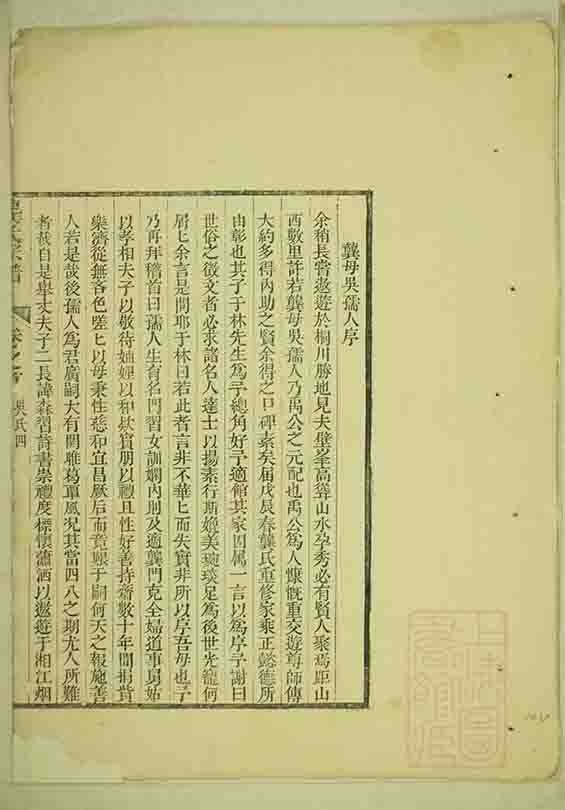 龔母吳孺人序
余稍長嘗遨遊於桐川勝地見夫壁峯高聳山水孕秀必有賢人聚焉距山
西數里許若龔母吳孺人乃禹公之元配也禹公為人慷慨重交遊尊師傅
大約多得內助之賢余得之口碑素矣屆戊辰春龔氏重修家乘正懿德所
由彰也其子于林先生為予總角好予適館其家因属一言以為序予謝曰
世俗之徵文者必求諸名人達士以揚素行斯媲美琬琰足為後世光寵何
屑匕余言是問耶于林曰若此者言非不華匕而失實非所以序吾母也予
乃再拜稽首曰孺人生育名門習女訓嫻內則及適龔門克全婦道事舅姑
以孝相夫子以敬待妯娌以和欵賓朋以禮且性好善持齋數十年間捐貲
樂濟從無吝色嗟匕以母秉性慈和宜昌厥后而竟艱于嗣何天之報施善
人若是哉後孺人為君廣嗣大有關雎葛覃風况其當四八之期尤人所難
者哉自是舉丈夫子二長諱森習詩書崇禮度襟懷瀟洒以遨遊于湘江烟
吳氏四